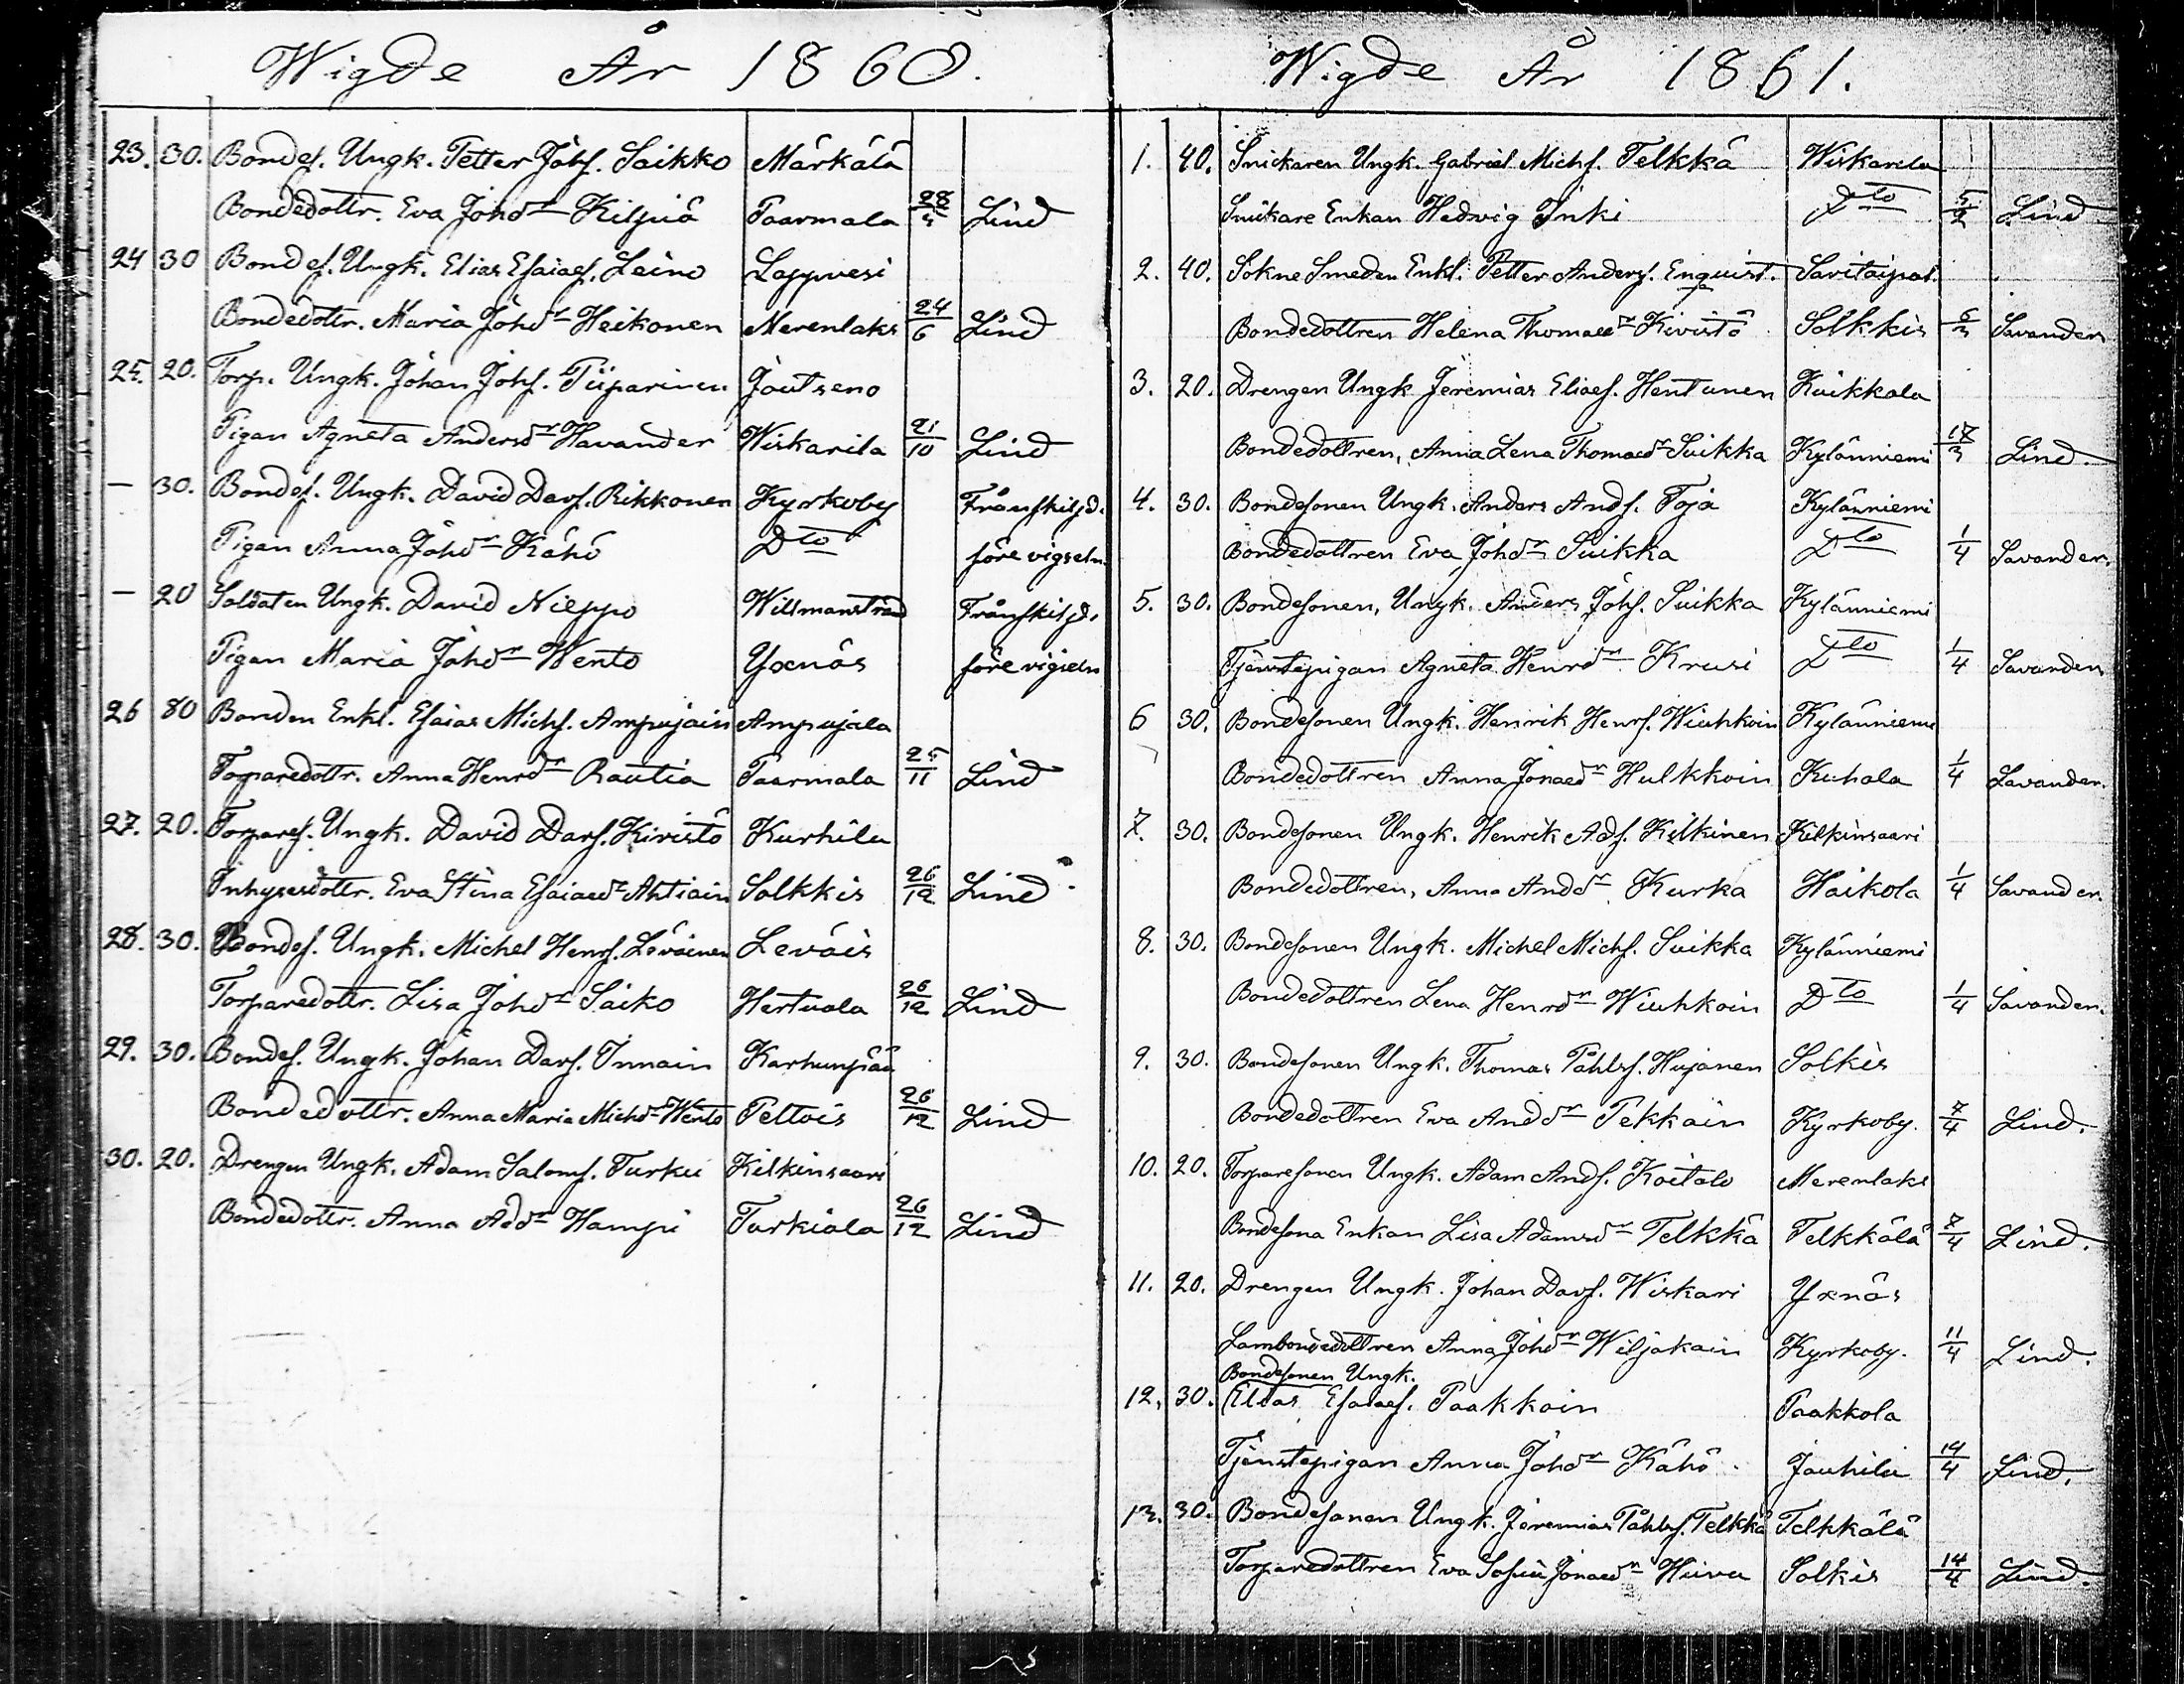 Wigde År 1860.
23. 30. Bondes. Ungk. Petter Johs. Saikko Märkälä
Bondedottr. Eva Johdr Kilpiä Taarmala 28/5 Lind
24 30 Bondes. Ungk. Elias Esaiaes. Leino Lappvesi
Bondedottr. Maria Johdr Heikonen Merenlaks 24/6 Lind
25. 20. Torp. Ungk. Johan Johs. Tiiparinen Joutseno
Pigan Agneta Andersdr Havander Wiskarila 21/10 Lind
— 30. Bondes. Ungk. David Davs. Rikkonen Kyrkoby Frånskiljd.
Pigan Anna Johdr Kähö Dto före vigseln.
— 20 Soldaten Ungk. David Nieppo Willmanstrand Frånskiljd.
Pigan Maria Johdr Wento Yxnäs före vigseln
26 80 Bonden Enkl. Esaias Michs. Ampujain Ampujala
Torparedottr. Anna Henrdr Rautia Taarmala 25/11 Lind
27. 20. Torpares. Ungk. David Davs. Kivistö Kurhila
Inhysesdottr. Eva Stina Esaiaedr Ahtiain Solkkis 26/12 Lind
28. 30. Bondes. Ungk. Michel Henrs. Leväinen Leväis
Torparedottr. Lisa Johdr Säiko Hertuala 26/12 Lind
29. 30. Bondes. Ungk. Johan Davs. Innain Karhunpää
Bondedottr. Anna Maria Michdr Wento Peltois 26/12 Lind
30. 20. Drengen Ungk. Adam Saloms. Turku Kilkinsaari
Bondedottr. Anna Addr Hampi Turkiala 26/12 Lind
Wigde År 1861.
1. 40. Snickaren Ungk. Gabriel Michs. Telkkä Wiskarila
Snickare Enkan Hedvig Inki Dto 5/2 Lind
2. 40. Sokne Smeden Enkl. Petter Anders. Enquist. Savitaipal.
Bondedottren Helena Thomaedr Kivistö Solkkis 5/3 Savander
3. 20. Drengen Ungk Jeremias Eliaes. Hentunen Kaikkala
Bondedottren, Anna Lena Thomaedr Suikka Kylänniemi 17/3 Lind.
4. 30. Bondesonen Ungk. Anders Ands. Toja Kylänniemi
Bondedottren Eva Johdr Suikka Dto 1/4 Savander.
5. 30. Bondesonen, Ungk. Anders Johs. Suikka Kylänniemi
Tjenstepigan Agneta Henrdr Krusi Dto 1/4 Savander
6 30. Bondesonen Ungk. Henrik Henrs. Wiuhkoin Kylänniemi
Bondedottren Anna Jonaedr Hulkkoin Kuhala 1/4 Savander.
7. 30. Bondesonen Ungk. Henrik Ads. Kilkinen Kilkinsaari
Bondedottren, Anna Anddr Kurka Haikola 1/4 Savander.
8. 30. Bondesonen Ungk. Michel Michs. Suikka Kylänniemi
Bondedottren Lena Henrdr Wiuhkoin Dto 1/4 Savander.
9. 30. Bondesonen Ungk. Thomas Påhls. Hujanen Solkis
Bondedottren Eva Anddr Pekkain Kyrkoby. 7/4 Lind.
10. 20. Torparesonen Ungk. Adam Ands. Koitalo Merenlaks
Bondesona Enkan Lisa Adamsdr Telkkä Telkkälä 7/4 Lind.
11. 20. Drengen Ungk. Johan Davs. Wiskari Yxnäs
Lambondedottren Anna Johdr Wiljakain Kyrkoby. 11/4 Lind.
Bondesonen Ungk.
12. 30. Elias Esaiaes. Paakkoin Paakkola
Tjenstepigan Anna Johdr Kähö Jauhila 14/4 Lind.
13. 30. Bondesonen Ungk. Jeremias Påhls. Telkkä Telkkälä
Torparedottren Eva Sofia Jonaedr Huva Solkis 14/4 Lind.